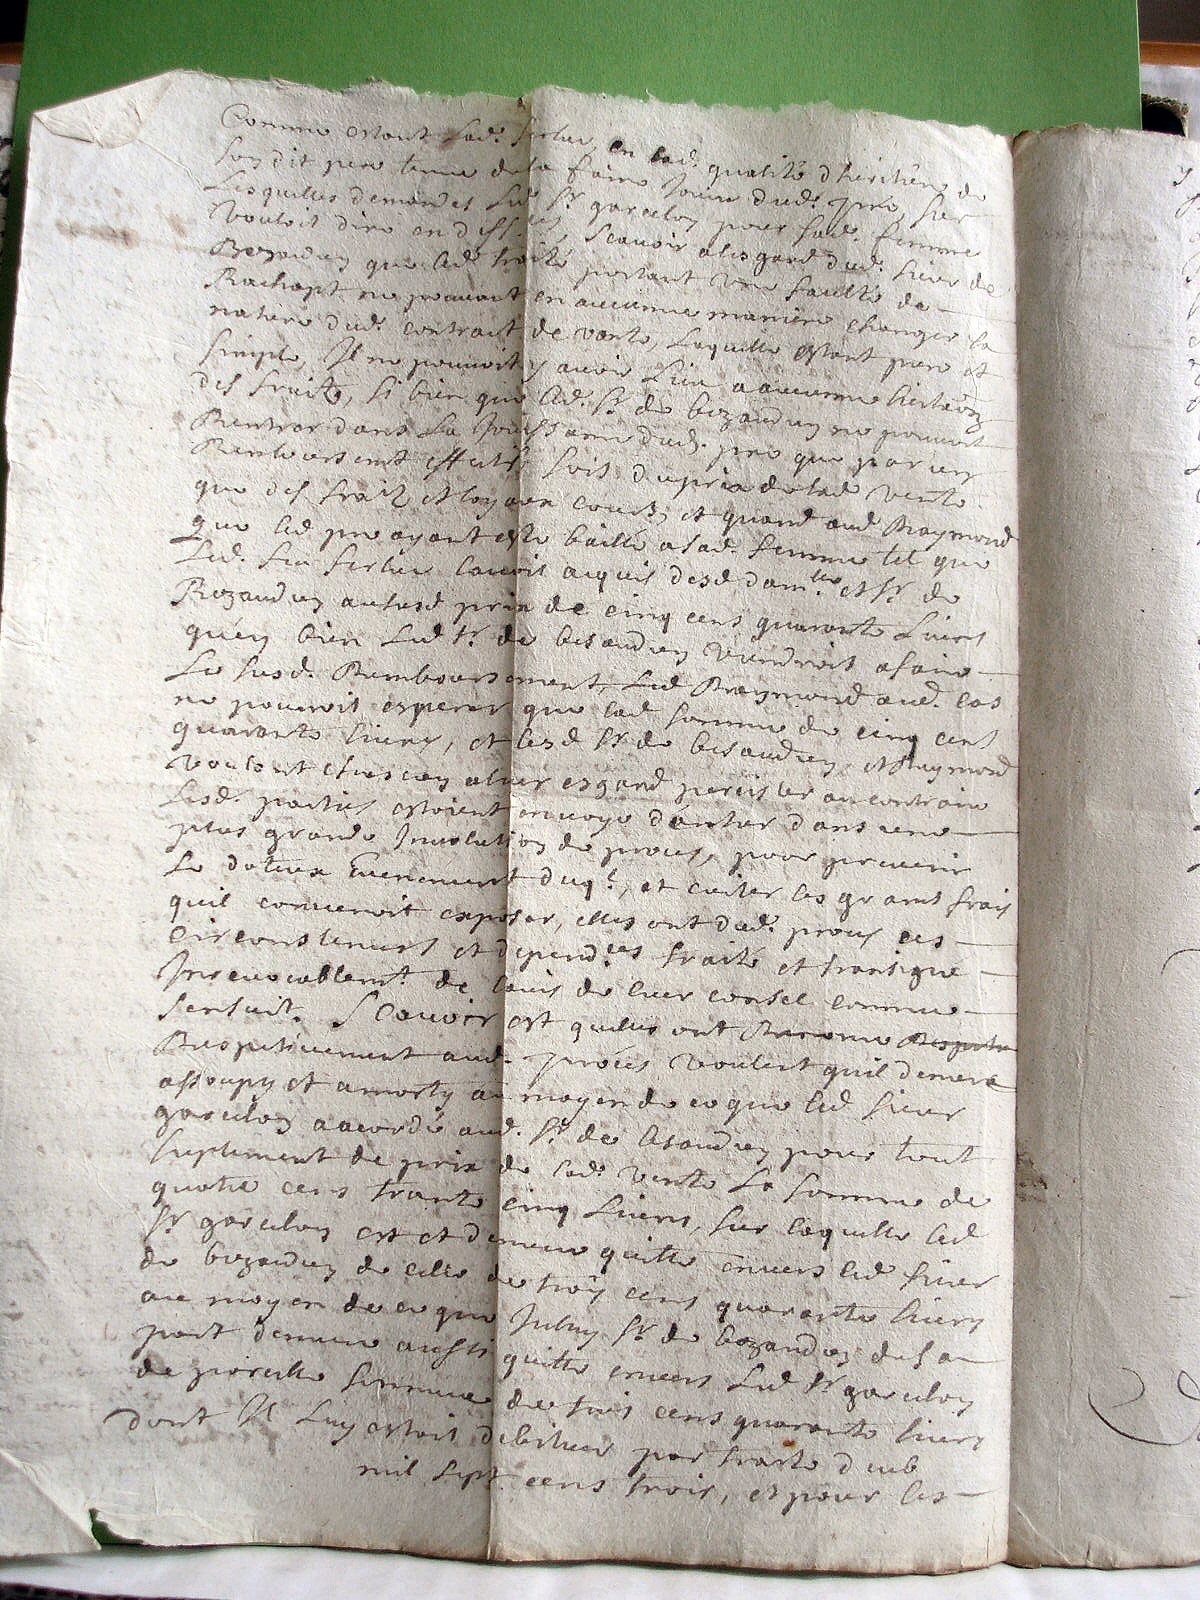 Comme estant lad. ferlur en lad. qualité d'héritiere de
son dit pere tenue de la faire Jouir dud. pré, sur
Lesquelles demandes Led. Sr garcelon pour lad. femme
vouloit dire en deffences, scauoir alesgard dud. sieur de
Bezaudun que led. traité portant une faculté de
Rachapt ne pouuoit en aucunne maniere changer la
nature dud. contract de vante, Laquelle estant pure et
simple, Il ne pouuoit y auoir lieu a aucunne
des fruits, si bien que led. Sr de bezaudun ne pouuoit
Rentrer dans La Jouissance dud. pré que par un
Rembourcement effectif soit du prix de lad. vente
que des fraix et loyaux couts, et quand aud. Raymond
que led. pré ayant esté baillé a lad. femme tel que
Led. feu ferlur l'auoit acquis desd. damlle et Sr de
Bezaudun aususd. prix de cinq cens quarante Liures
quey bien Led. Sr de besaudun viendroit a faire
Le susd. Rembourcement, Led. Raymond aud. cas
ne pouuoit esperer que lad. somme de cinq cent
quarante liures, et lesd. Sr de besaudun et Raymond
voulant chascun a leur esgard percister au contraire
Lesd. parties estoient en voye d'entrer dans une
plus grande Inuolution de proces, pour preuenir
Le doteux Euenement duql, et euiter les grands frais
quil conuenoit exposer, elles ont dud. proces ces
circonstances et dependces traité et transigué
Inreuocablemt de l'auis de leur consel comme
sensuit. Scauoir est quelles ont
Respectiuement aud. procés voulent quil demere
assoupy et amorty au moyen de ce que led. sieur
garcelon a accordé aud. Sr de besaudun pour tout
suplement de prix de lad. vente La somme de
quatre cens trante cinq Liures, sur laquelle led.
Sr garcelon est et demeure quitte enuers led. sieur
de bezaudun de celle de trois cens quarante liures
au moyen de ce que Sr de bezaudun de sa
part demeure aussi quitte enuers Led. Sr garcelon
de pareille somme de trois cens quarante liures
dont Il luy estoit debiteur par traité d
mil sept cens trois, et pour les